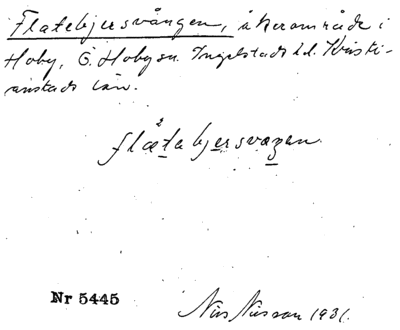 Flatebjersvången, åkerområde i
Hoby, Ö. Hoby sn. Ingelstads hd. Kristi-
anstads län.
flætabjersvæŋen
Nr 5445
Nils Nilsson 1931.